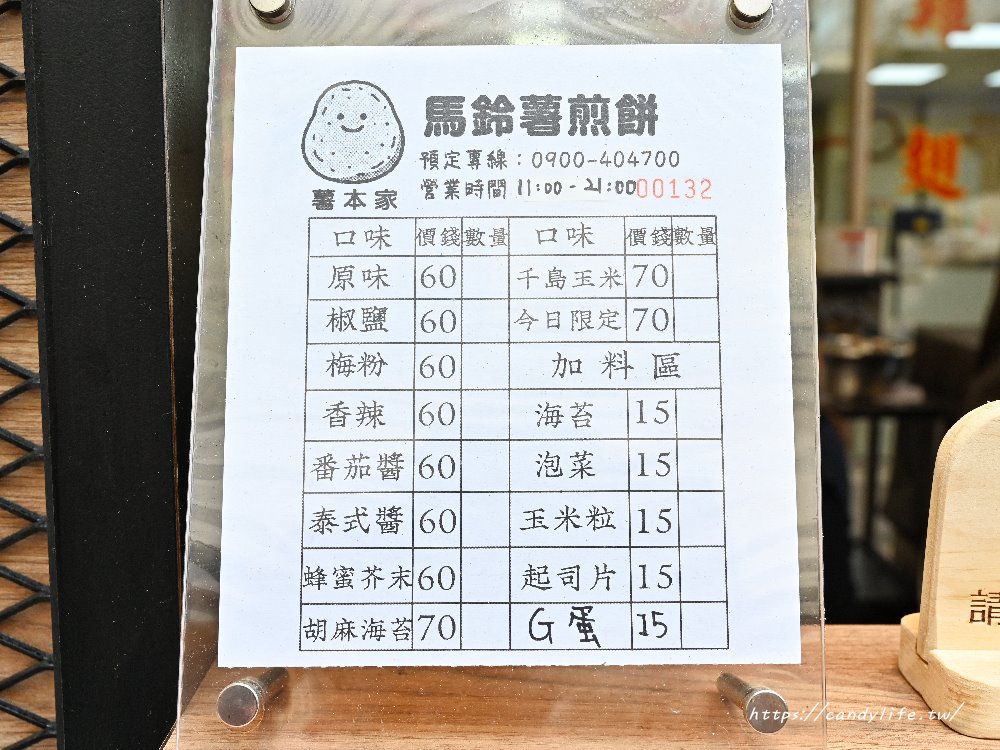 馬鈴薯煎餅
預定專線：0900-404700
營業時間 11:00-21:00 00132
薯本家
口味 價錢 數量 口味 價錢 數量
原味 60 千島玉米 70
椒鹽 60 今日限定 70
梅粉 60 加料區
香辣 60 海苔 15
番茄醬 60 泡菜 15
泰式醬 60 玉米粒 15
蜂蜜芥末 60 起司片 15
胡麻海苔 70 G蛋 15
請
https://candylife.tw/